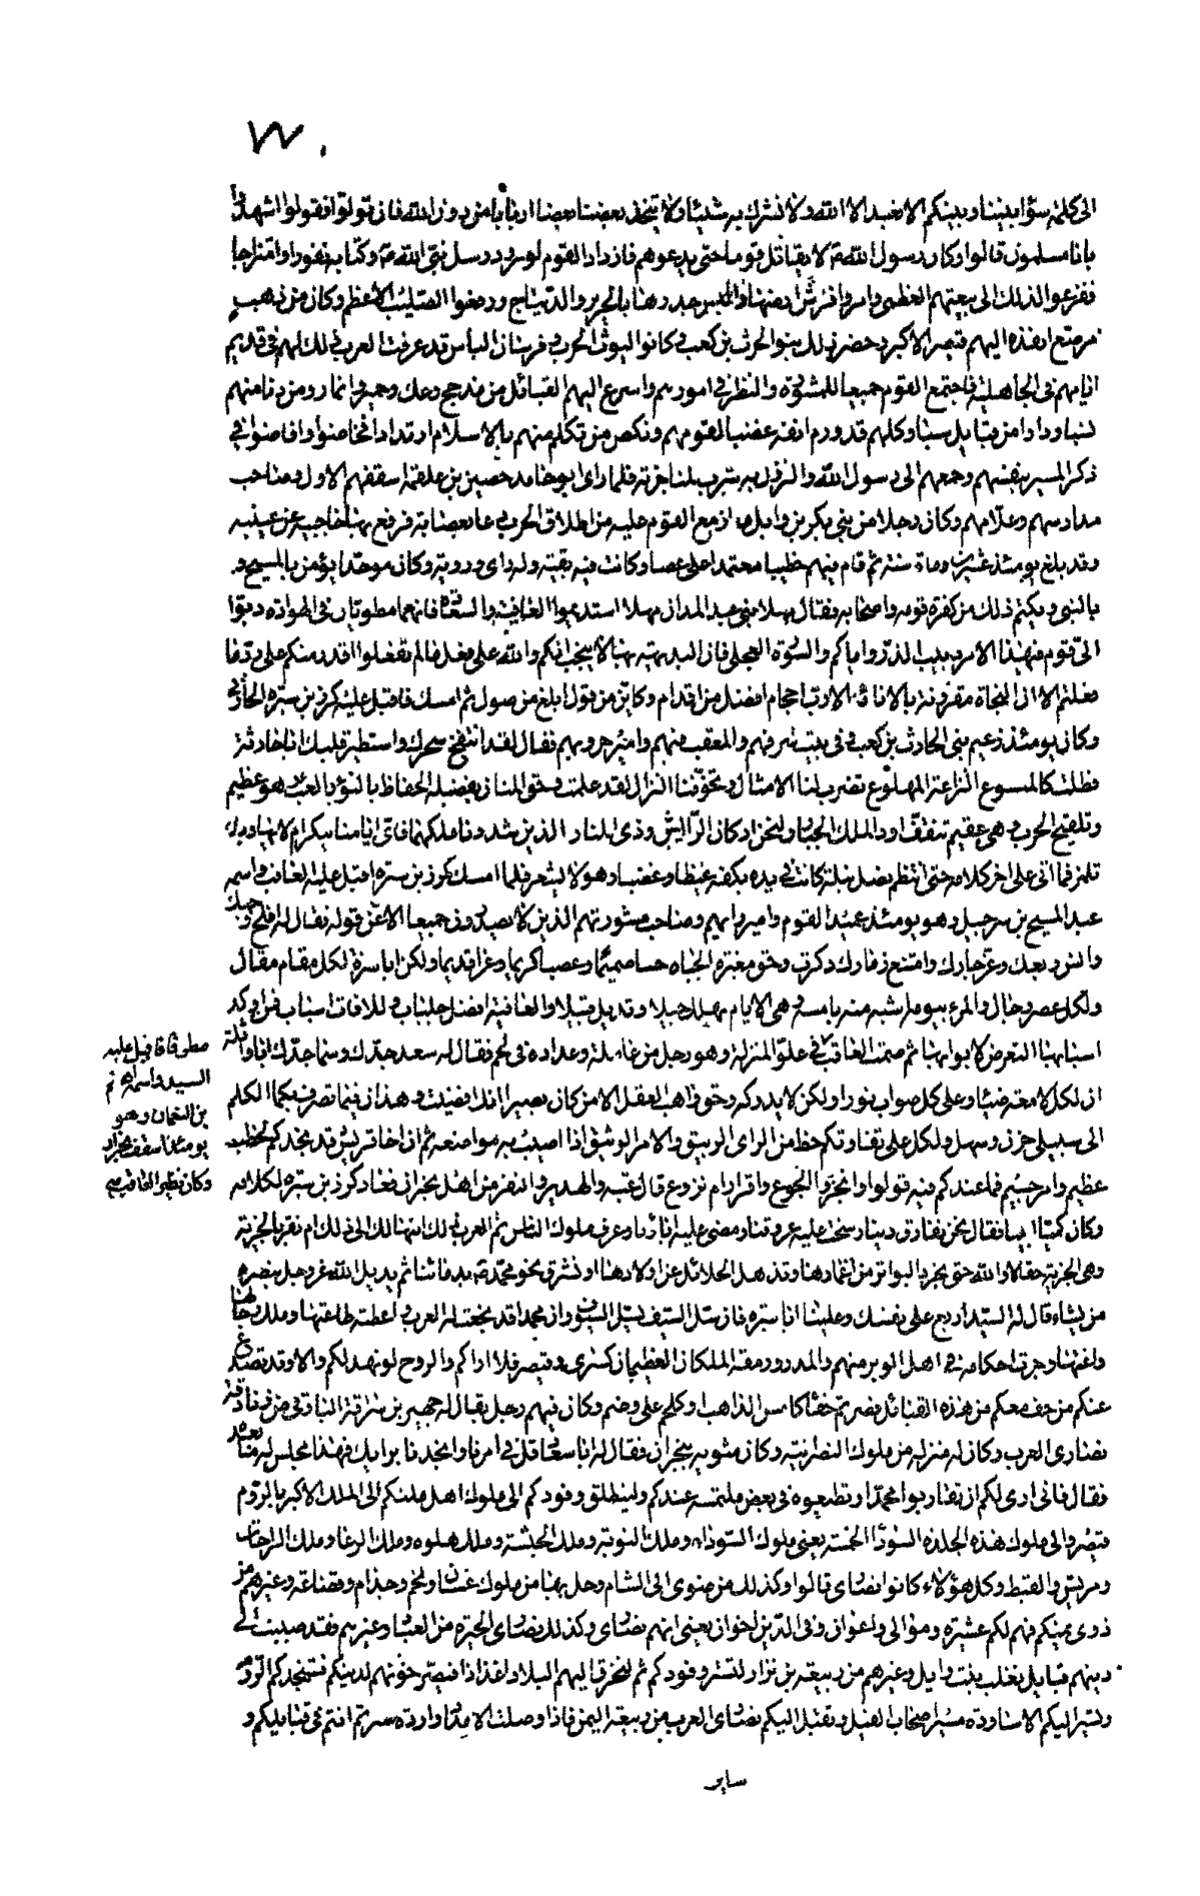 ٧٧٠
الى كلمة سواء بيننا وبينكم الا نعبد الا الله ولا نشرك به شيئا ولا يتخذ بعضنا بعضا اربابا من دون الله فان تولوا فقولوا اشهدوا
بانا مسلمون قالوا وكان رسول الله لا يقاتل قوما حتى يدعوهم فازداد القوم لورود رسل نبي الله وكتابه نفورا وامتزاجا
ففزعوا لذلك الى بيعتهم العظمى وامروا ففرش ارضها والبس جدرها بالحرير والديباج ورفعوا الصليب الاعظم وكان من ذهب
مرصع انفذه اليهم قيصر الاكبر وحضر ذلك بنو الحرث بن كعب وكانوا ليوث الحرب وفرسان الناس قد عرفت العرب ذلك لهم في قديم
ايامهم في الجاهلية فاجتمع القوم جميعا للمشورة والنظر في امورهم واسرع اليهم القبائل من مذحج وعك وحمير وانمار ومن دنا منهم
نسبا ودارا من قبايل سبا وكلهم قد ورم انفه غضبا لقومهم ونكص من تكلم منهم بالاسلام ارتدادا فخاضوا وافاضوا في
ذكر المسير بنفسهم وجمعهم الى رسول الله والنزول به بيثرب لمناجزته فلما راى ابو حامد حصين بن علقمة اسقفهم الاول وصاحب
مدارسهم وعلامهم وكان رجلا من بني بكر بن وايل ما ازمع القوم عليه من اطلاق الحرب دعا بعصابة فرفع بها حاجبيه عن عينيه
وقد بلغ يومئذ عشرين ومائة سنة ثم قام فيهم خطيبا معتمدا على عصا وكانت فيه بقية وله راى وروية وكان موحدا يؤمن بالمسيح و
بالنبي ويكتم ذلك من كفرة قومه واصحابه فقال مهلا بني عبد المدان مهلا استديموا العافية والسعادة فانهما مطويان في الهوادة دبوا
الى قوم في هذا الامر دبيب الذر واياكم والسورة العجلى فان البديهة بها لا ينجب انكم والله على فعل ما لم تفعلوا اقدر منكم على رد ما
فعلتم الا ان النجاة مقرونة بالاناة الا رب احجام افضل من اقدام وكاين من قول ابلغ من صول ثم امسك فاقبل عليه كرز بن سبرة الحارثي
وكان يومئذ زعيم بني الحارث بن كعب وفي بيت شرفهم والمعقب فيهم وامير حروبهم فقال لقد انتفخ سحرك واستطير قلبك ابا حارثة
فظلت كالمسبوع النزاعة المهلوع تضرب لنا الامثال وتخوفنا النزال لقد علمت وحق المنان بفضيلة الحفاظ بالنوء بالعبء وهو عظيم
وتلقيح الحرب وهي عقيم تثقف اود الملك الجبار ولنحن اركان الرايش وذي المنار الذين شدونا ملكهما فاى ايامنا ينكر ام لايها ويك
تلمز فما اتى على اخر كلامه حتى انتظم بفضل نبلة كانت في يده بكفه غيظا وغضبا وهو لا يشعر فلما امسك كرز بن سبرة اقبل عليه العاقب واسمه
عبد المسيح بن شرحبيل وهو يومئذ عميد القوم وامير رايهم وصاحب مشورتهم الذين لا يصدرون جميعا الا عن قوله فقال له افلح وجهك
وانس ربعك وعز جارك وامتنع ذمارك ذكرت وحق مغبرة الجباه حسبا صميما وعيصا كريما وعزا قديما ولكن ابا سبرة لكل مقام مقال
ولكل عصر رجال والمرء بيومه اشبه منه بامسه وهي الايام تهلك جيلا وتديل قبيلا والعافية افضل جلباب وللافات اسباب فمن اوكد
اسبابها التعرض لابوابها ثم صمت العاقب مطرقا فاقبل عليه السيد واسمه اهتم بن النعمان وهو يومئذ اسقف نجران وكان نظير العاقب في علو المنزلة وهو رجل من عاملة وعداده في لخم فقال له سعد جدك وسما جدك ابا واثلة
ان لكل لامعة ضياء وعلى كل صواب نورا ولكن لا يدركه وحق واهب العقل الا من كان بصيرا انك افضيت وهذان فيما تصرف بكما الكلم
الى سبيلي حزن وسهل ولكل على تفاوتكم حظ من الراى الربيق والامر الوثيق اذا اصيب به مواضعه ثم ان اخا قريش قد نجدكم لخطب
عظيم وامر جسيم فما عندكم فيه قولوا وانجزوا ابخوع واقرار ام نزوع قال عتبة والهدير والنفر من اهل نجران فعاد كرز بن سبرة لكلامه
وكان كميا ابيا فقال انحن نفارق دينا رسخت عليه عروقنا ومضى عليه اباؤنا وعرف ملوك الناس ثم العرب ذلك منا انتهالك الى ذلك ام نقر بالجزية
وهي الجزية حقا لا والله حتى نجرد البواتر من اغمادها وتذهل الحلائل عن اولادها او نشرق نحن ومحمد بدمائنا ثم يديل الله عز وجل بنصره
من يشاء قال له السيد اربع على نفسك وعلينا ابا سبرة فان سل السيف يسل السيوف وان محمدا قد بخعت له العرب واعطته طاعتها وملك رجالها
واعنتها وجرت احكامه في اهل الوبر منهم والمدر ورمقه الملكان العظيمان كسرى وقيصر فلا اراكم والروح لو نهد لكم والا وقد تصدع
عنكم من خف معكم من هذه القبائل فصرتم جفاء كامس الذاهب او كلحم على وضم وكان فيهم رجل يقال له جهير بن سراقة البارقي من زنادقة
نصارى العرب وكان له منزلة من ملوك النصرانية وكان مثويه بنجران فقال له ابا سعاد قل في امرنا وانجدنا برايك فهذا مجلس له ما بعده
فقال فاني ارى لكم ان تقاربوا محمدا وتطيعوه في بعض ملتمسه عندكم ولينطلق وفودكم الى ملوك اهل ملتكم الى الملك الاكبر بالروم
قيصر والى ملوك هذه الجلدة السوداء الخمسة يعني ملوك السودان وملك النوبة وملك الحبشة وملك علوه وملك الرعا وملك الراحات
ومريس والقبط وكل هؤلاء كانوا نصارى قالوا وكذلك من ضوى الى الشام وحل بها من ملوك غسان ولخم وجذام وقضاعة وغيرهم من
ذوي يمنكم فهم لكم عشيرة وموالي واعوان وفي الدين اخوان يعني انهم نصارى وكذلك نصارى الحيرة من العباد وغيرهم فقد صبت الى
دينهم قبايل تغلب بنت وايل وغيرهم من ربيعة بن نزار لتسر وفودكم ثم لتخرق اليهم البلاد اغذاذا فيستصرخونهم لدينكم فتستنجدكم الروم
وتسير اليكم الاساودة مسير اصحاب الفيل وتقبل اليكم نصارى العرب من ربيعة اليمن فاذا وصلت الامداد واردة سرتم انتم في قبايلكم و
ساير